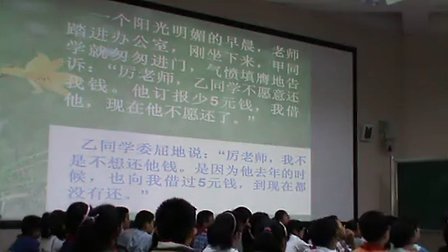 一个阳光明媚的早晨，老师
踏进办公室，刚坐下来，甲同
学就匆匆进门，气愤填膺地告
诉：“厉老师，乙同学不愿意还
我钱。他订报少5元钱，我借
他，现在他不愿还了。”
乙同学委屈地说：“厉老师，我不
是不想还他钱。是因为他去年的时
候，也向我借过5元钱，到现在都
没有还。”